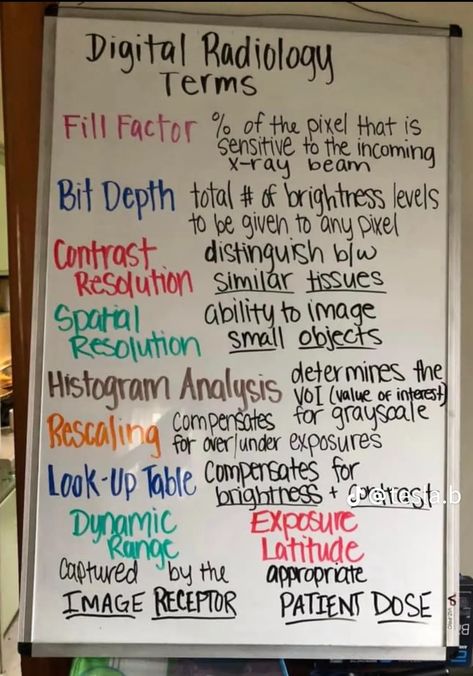 Digital Radiology
Terms
Fill Factor % of the pixel that is
sensitive to the incoming
x-ray beam
Bit Depth total # of brightness levels
to be given to any pixel
Contrast distinguish b/w
Resolution similar tissues
Spatial ability to image
Resolution small objects
Histogram Analysis determines the
VOI (value of interest)
for grayscale
Rescaling compensates
for over/under exposures
Look-Up Table compensates for
brightness + contrast
Dynamic Exposure
Range Latitude
captured by the appropriate
IMAGE RECEPTOR PATIENT DOSE